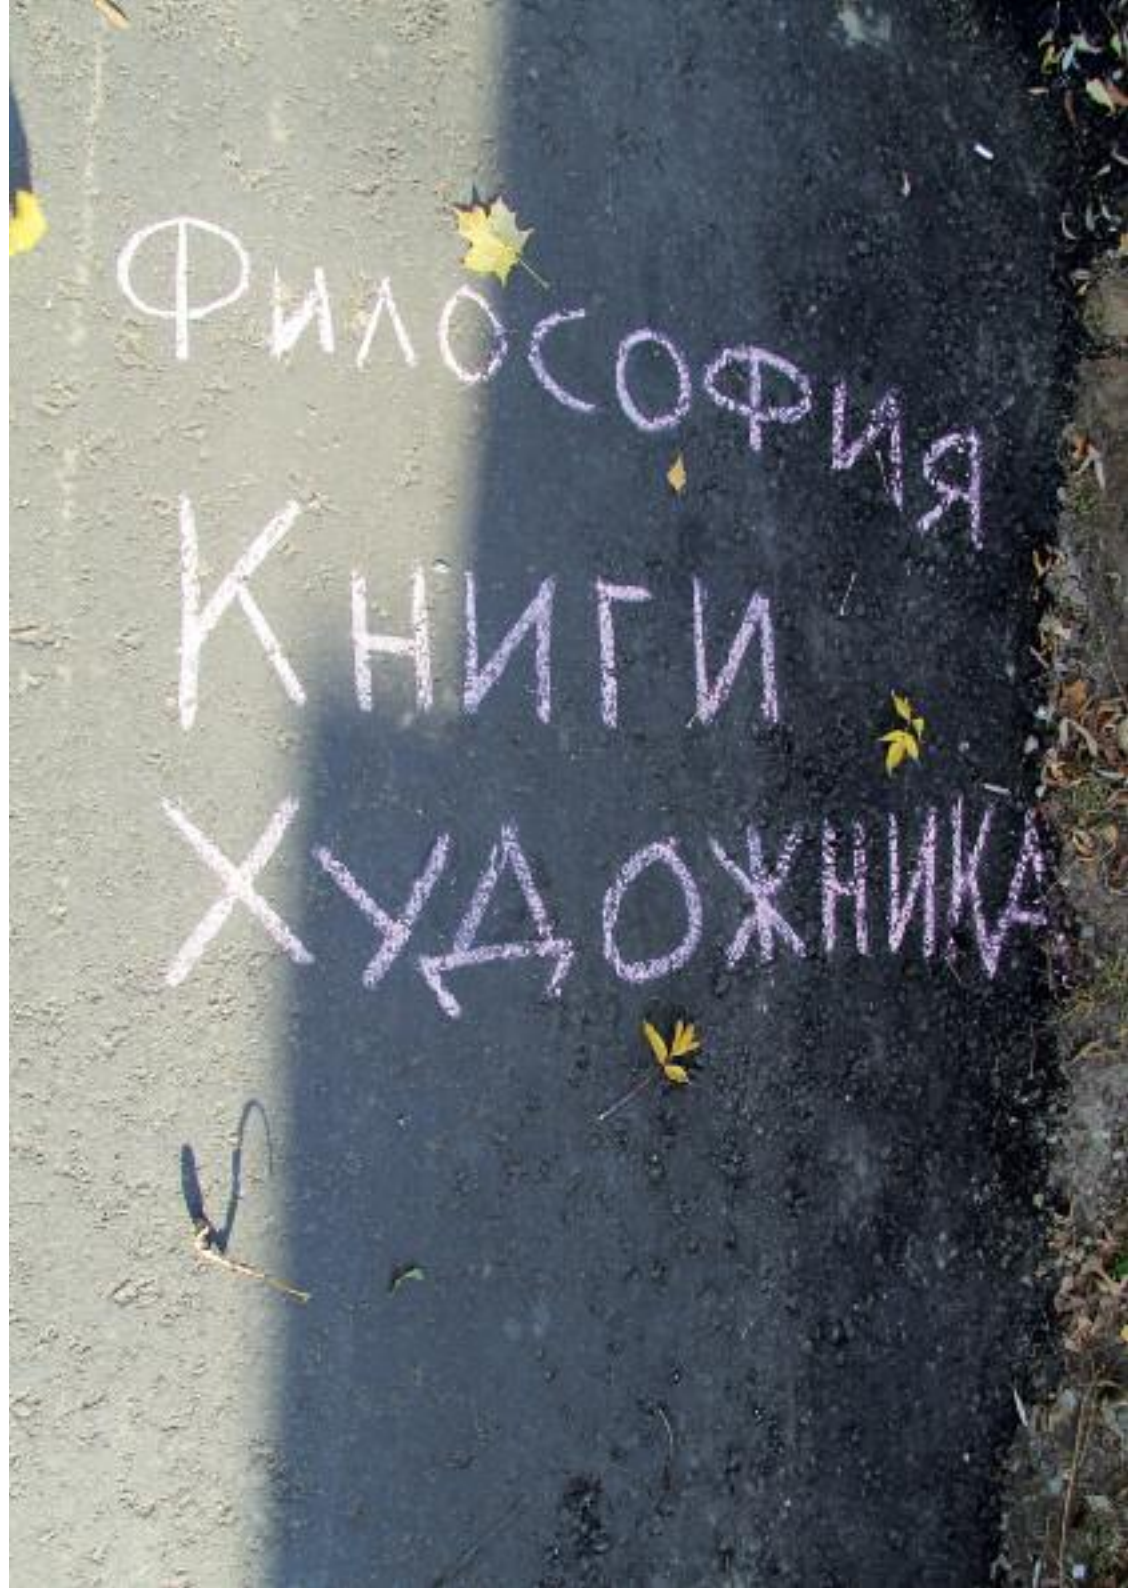 Философия
Книги
Художника